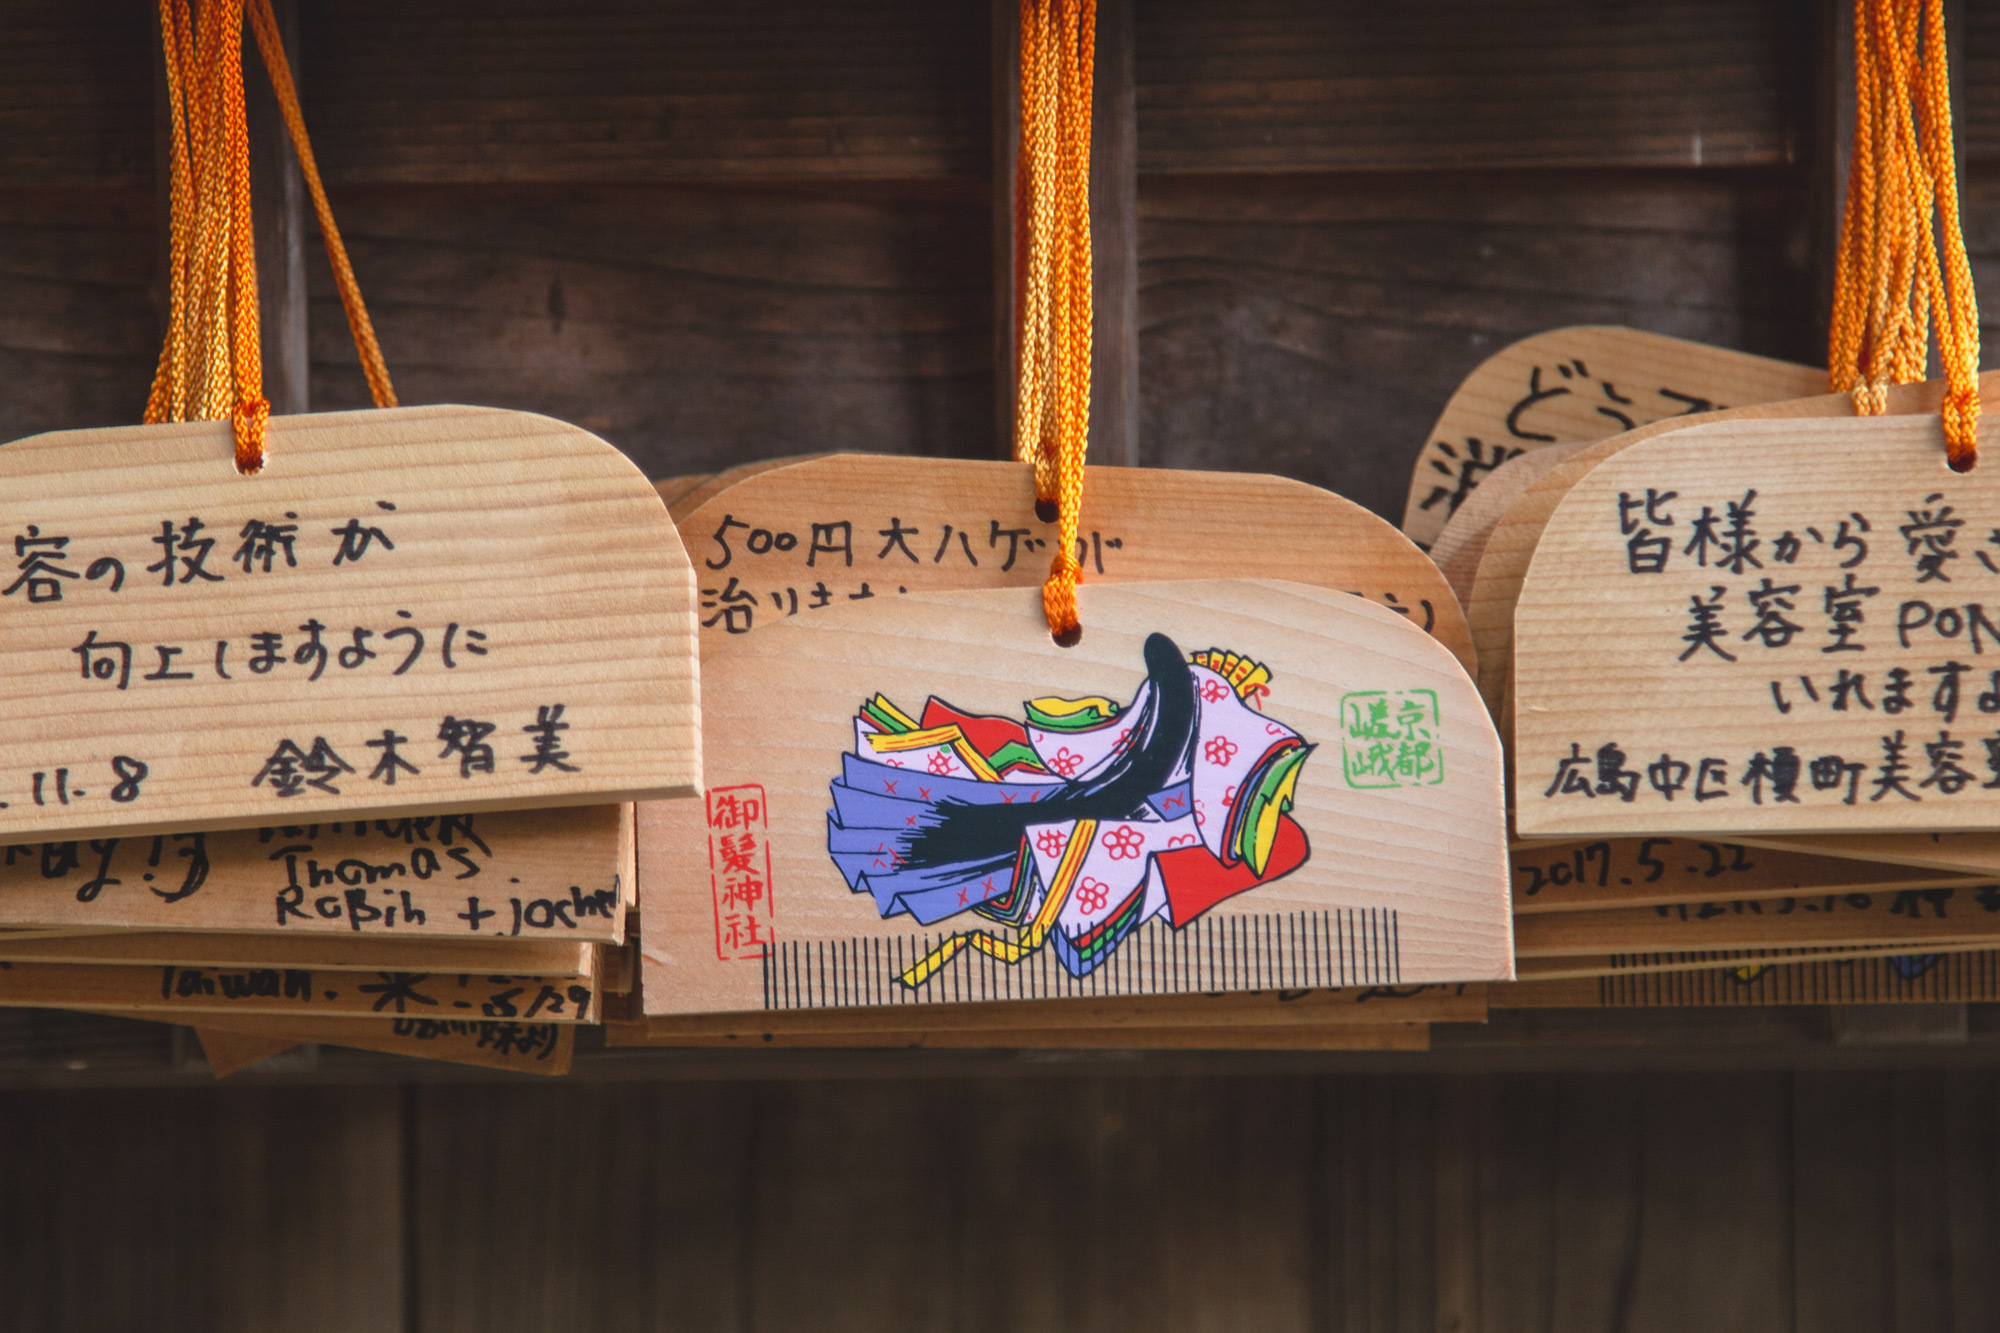 容の技術が
向上しますように
.11.8 鈴木智美
Thomas
Robin + jochen
Taiwan.
5/29
500円大ハゲが
治りますよ
御髪神社
京都
嵯峨
どう
皆様から愛さ
美容室PON
いれますよ
広島中区榎町美容室
2017.5.22